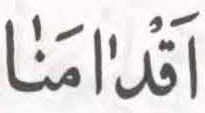 اَقْدٰامَنٰا